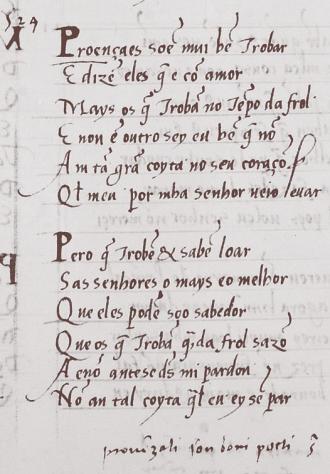 524
Proençaes soẽ mui bẽ Trobar
E dizẽ eles q̃ e cõ amor
Mays os q̃ Trobã no Tẽpo da frol
E non ẽ outro sey eu bẽ q̃ nõ
Am tã grã coyta no seu coraçõ
Ql̃ meu por mha senhor veio levar
Pero q̃ Trobã & sabẽ loar
Sas senhores o mays e o melhor
Que eles podẽ sõo sabedor
Que os q̃ Trobã q̃ da frol sazõ
A enõ ante se ds̃ mi pardon
Nõ an tal coyta ql̃ eu ey sẽ par
provenzali son boni poeti